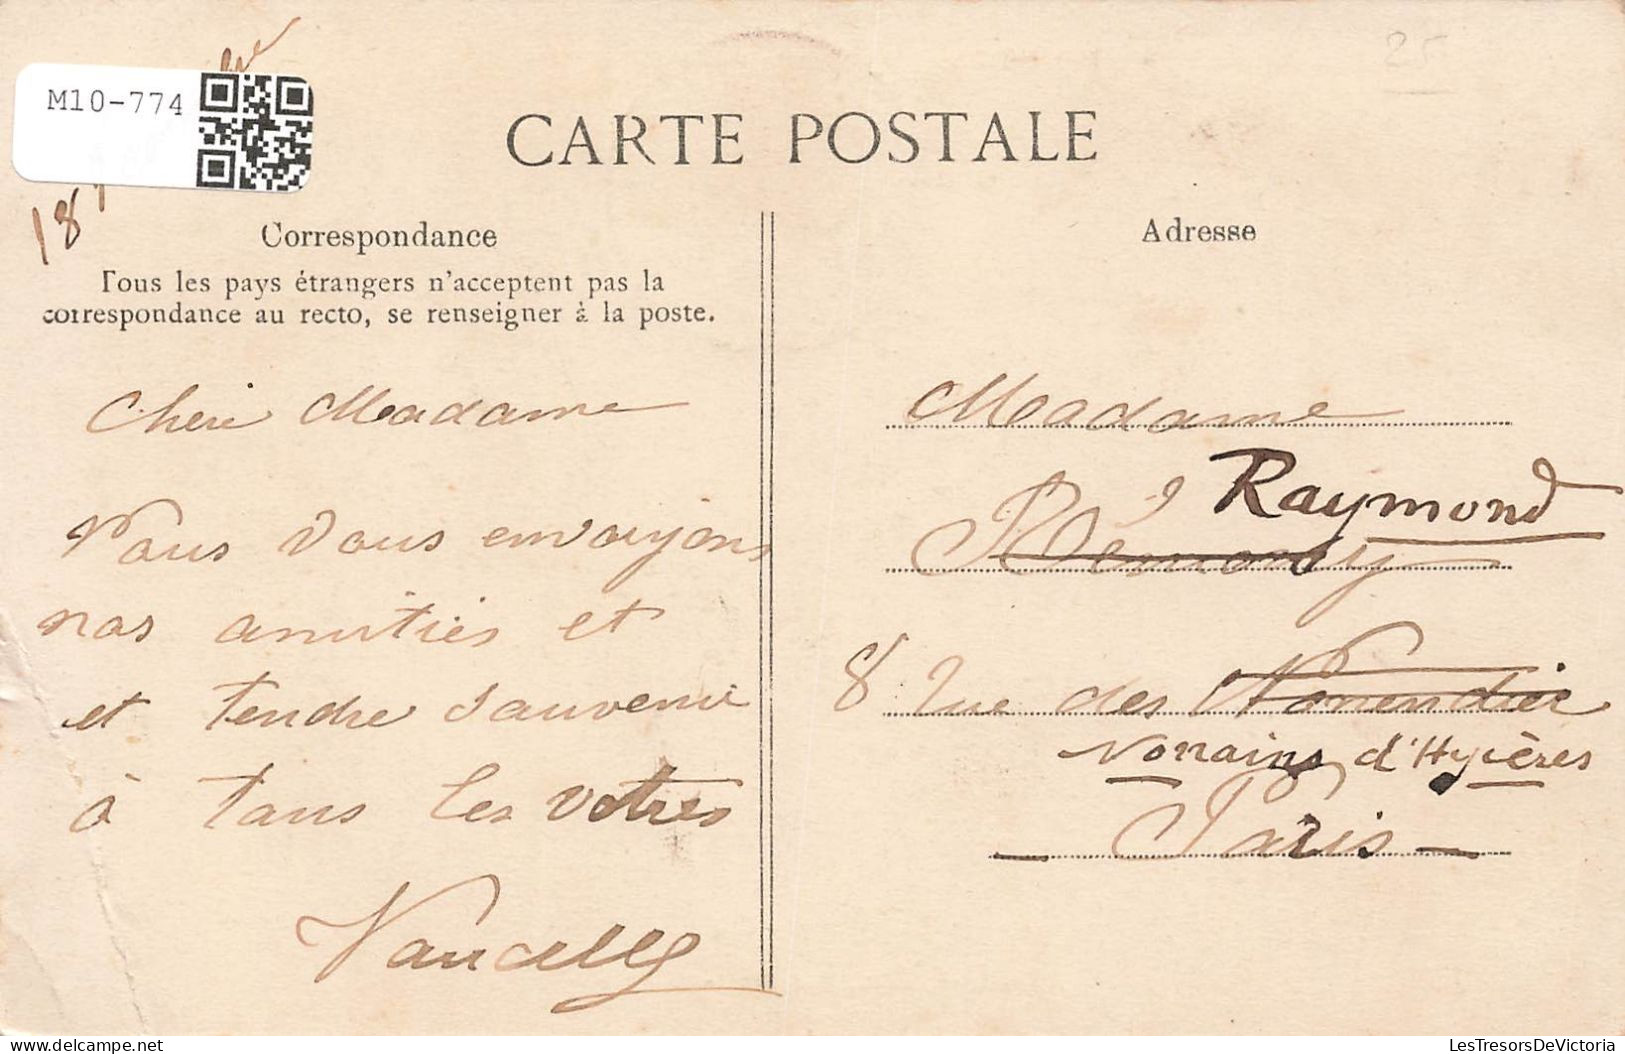 M10-774
18
CARTE POSTALE
Correspondance
Tous les pays étrangers n'acceptent pas la
correspondance au recto, se renseigner à la poste.
Adresse
25
Cheri Madame
Nous Vous envoiyons
nos amitiés et
et tendre Souvenir
à tous les votres
Madame
Raymond
Rémondy
8 rue des
Nonains d'Hyières
Paris
LesTresorsDeVictoria
delcampe.net
LesTresorsDeVictoria